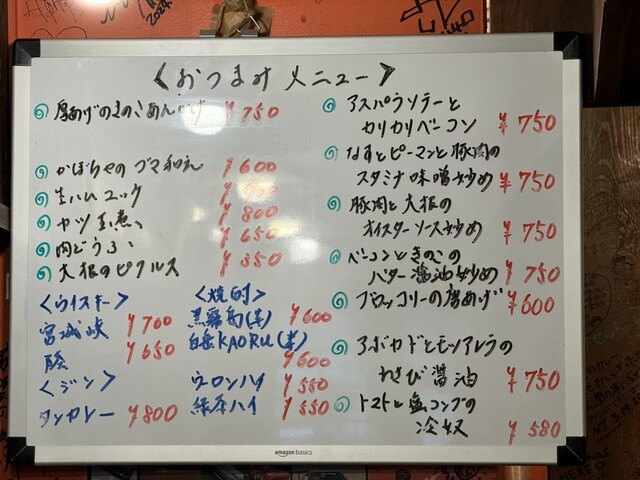 <おつまみ メニュー>
厚あげのきのこあんかけ ¥750
かぼちゃのゴマ和え ¥600
生ハムユッケ
カツ玉煮 ¥800
肉どうふ ¥650
大根のピクルス ¥350
<ウイスキー>
宮城峡 ¥700
¥650
<ジン>
タンカレー ¥800
<焼酎>
黒霧島(芋) ¥600
白岳KAORU(米)
¥600
ウーロンハイ ¥550
緑茶ハイ ¥550
アスパラソテーと
カリカリベーコン ¥750
なすとピーマンと豚肉の
スタミナ味噌炒め ¥750
豚肉と大根の
オイスターソース炒め ¥750
ベーコンときのこの
バター醤油炒め ¥750
ブロッコリーの唐あげ ¥600
アボカドとモッツアレラの
わさび醤油 ¥750
トマトと塩コンブの
冷奴 ¥580
amazonbasics